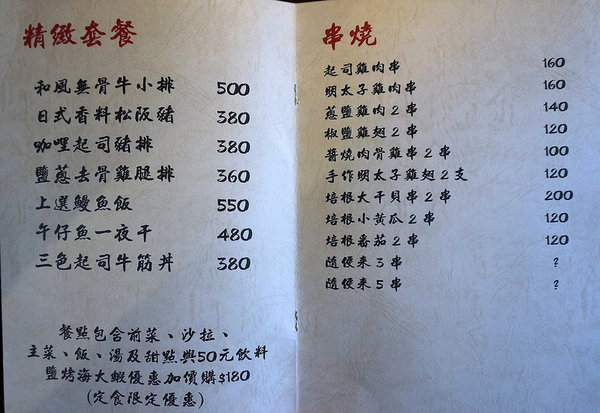 精緻套餐
和風無骨牛小排 500
日式香料松阪豬 380
咖哩起司豬排 380
鹽蔥去骨雞腿排 360
上選鰻魚飯 550
午仔魚一夜干 480
三色起司牛筋丼 380
餐點包含前菜、沙拉、
主菜、飯、湯及甜點與50元飲料
鹽烤海大蝦優惠加價購$180
(定食限定優惠)
串燒
起司雞肉串 160
明太子雞肉串 160
蔥鹽雞肉2串 140
椒鹽雞翅2串 120
醬燒肉骨雞串2串 100
手作明太子雞翅2支 120
培根大干貝串2串 200
培根小黃瓜2串 120
培根番茄2串 120
隨便來3串 ?
隨便來5串 ?